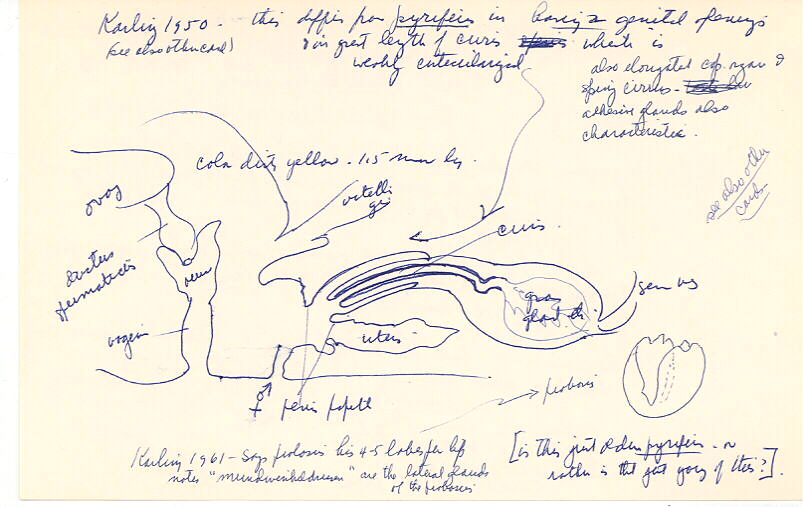 Karling 1950 - this differs from pyriferis in having 2 genital openings
(see also other card)
& in great length of cirris which is
weakly cuticularized
also elongated cop. organ &
spiny cirrus -
adhesive glands also
characteristic.
Color dirty yellow - 1.5 mm lg.
see also other
cards
vitelli
gl
ovary
cirris.
ductus
spermaticus
vagin
sem ves
gran
gland
uterus
♀ ♂ penis papilla
proboscis
Karling 1961 - says proboscis has 4-5 lobes per lip
notes "mundwinkeldrüsen" are the lateral glands
of the proboscis
[is this just older pyriferis - or
rather is that just young of this?].